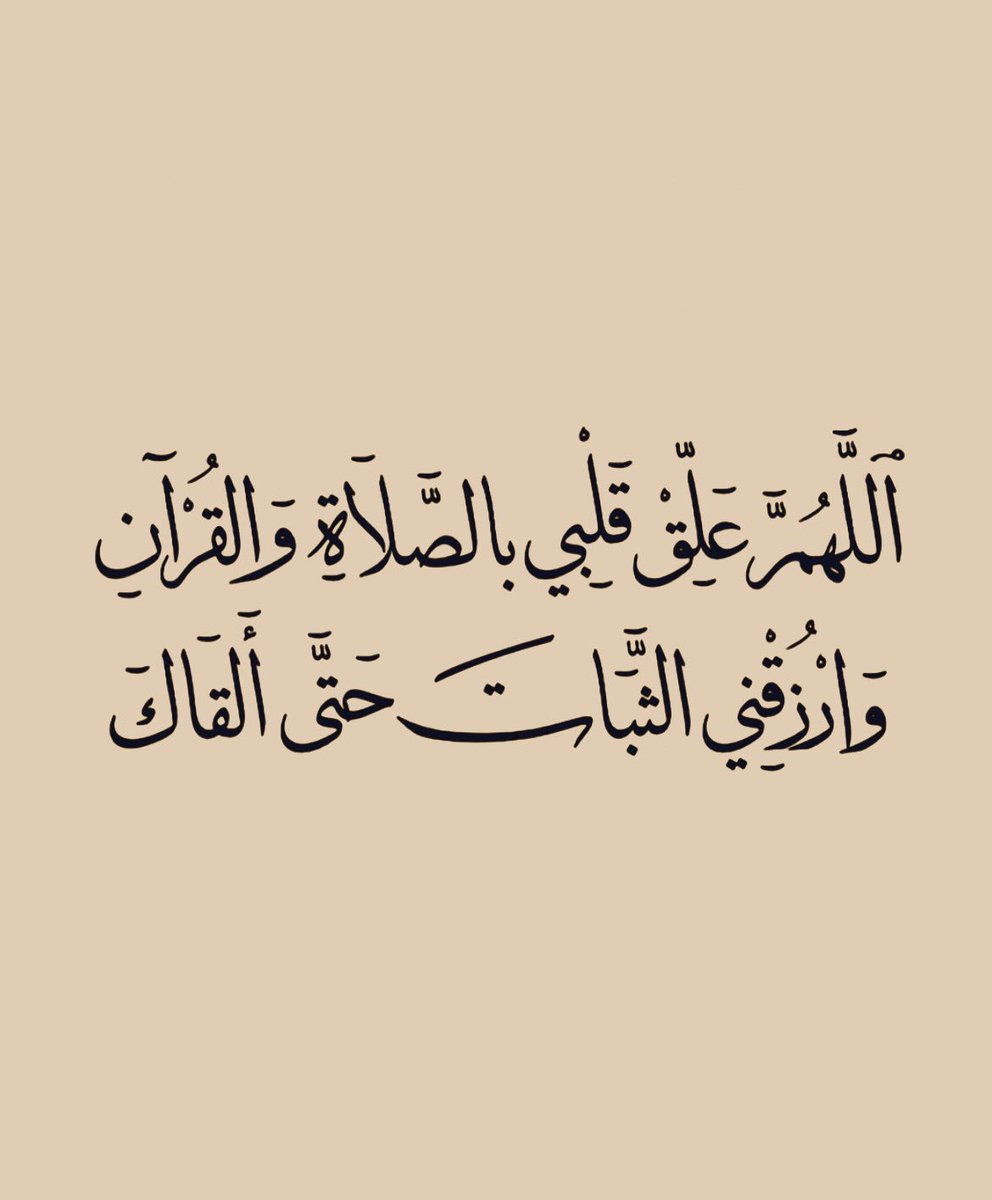 ٱللَّهُمَّ عَلِّقْ قَلْبِي بالصَّلَاَةِ وَالقُرْآنِ
وَارْزُقْنِي الثَّبَّاتَ حَتَّى أَلقَاكَ